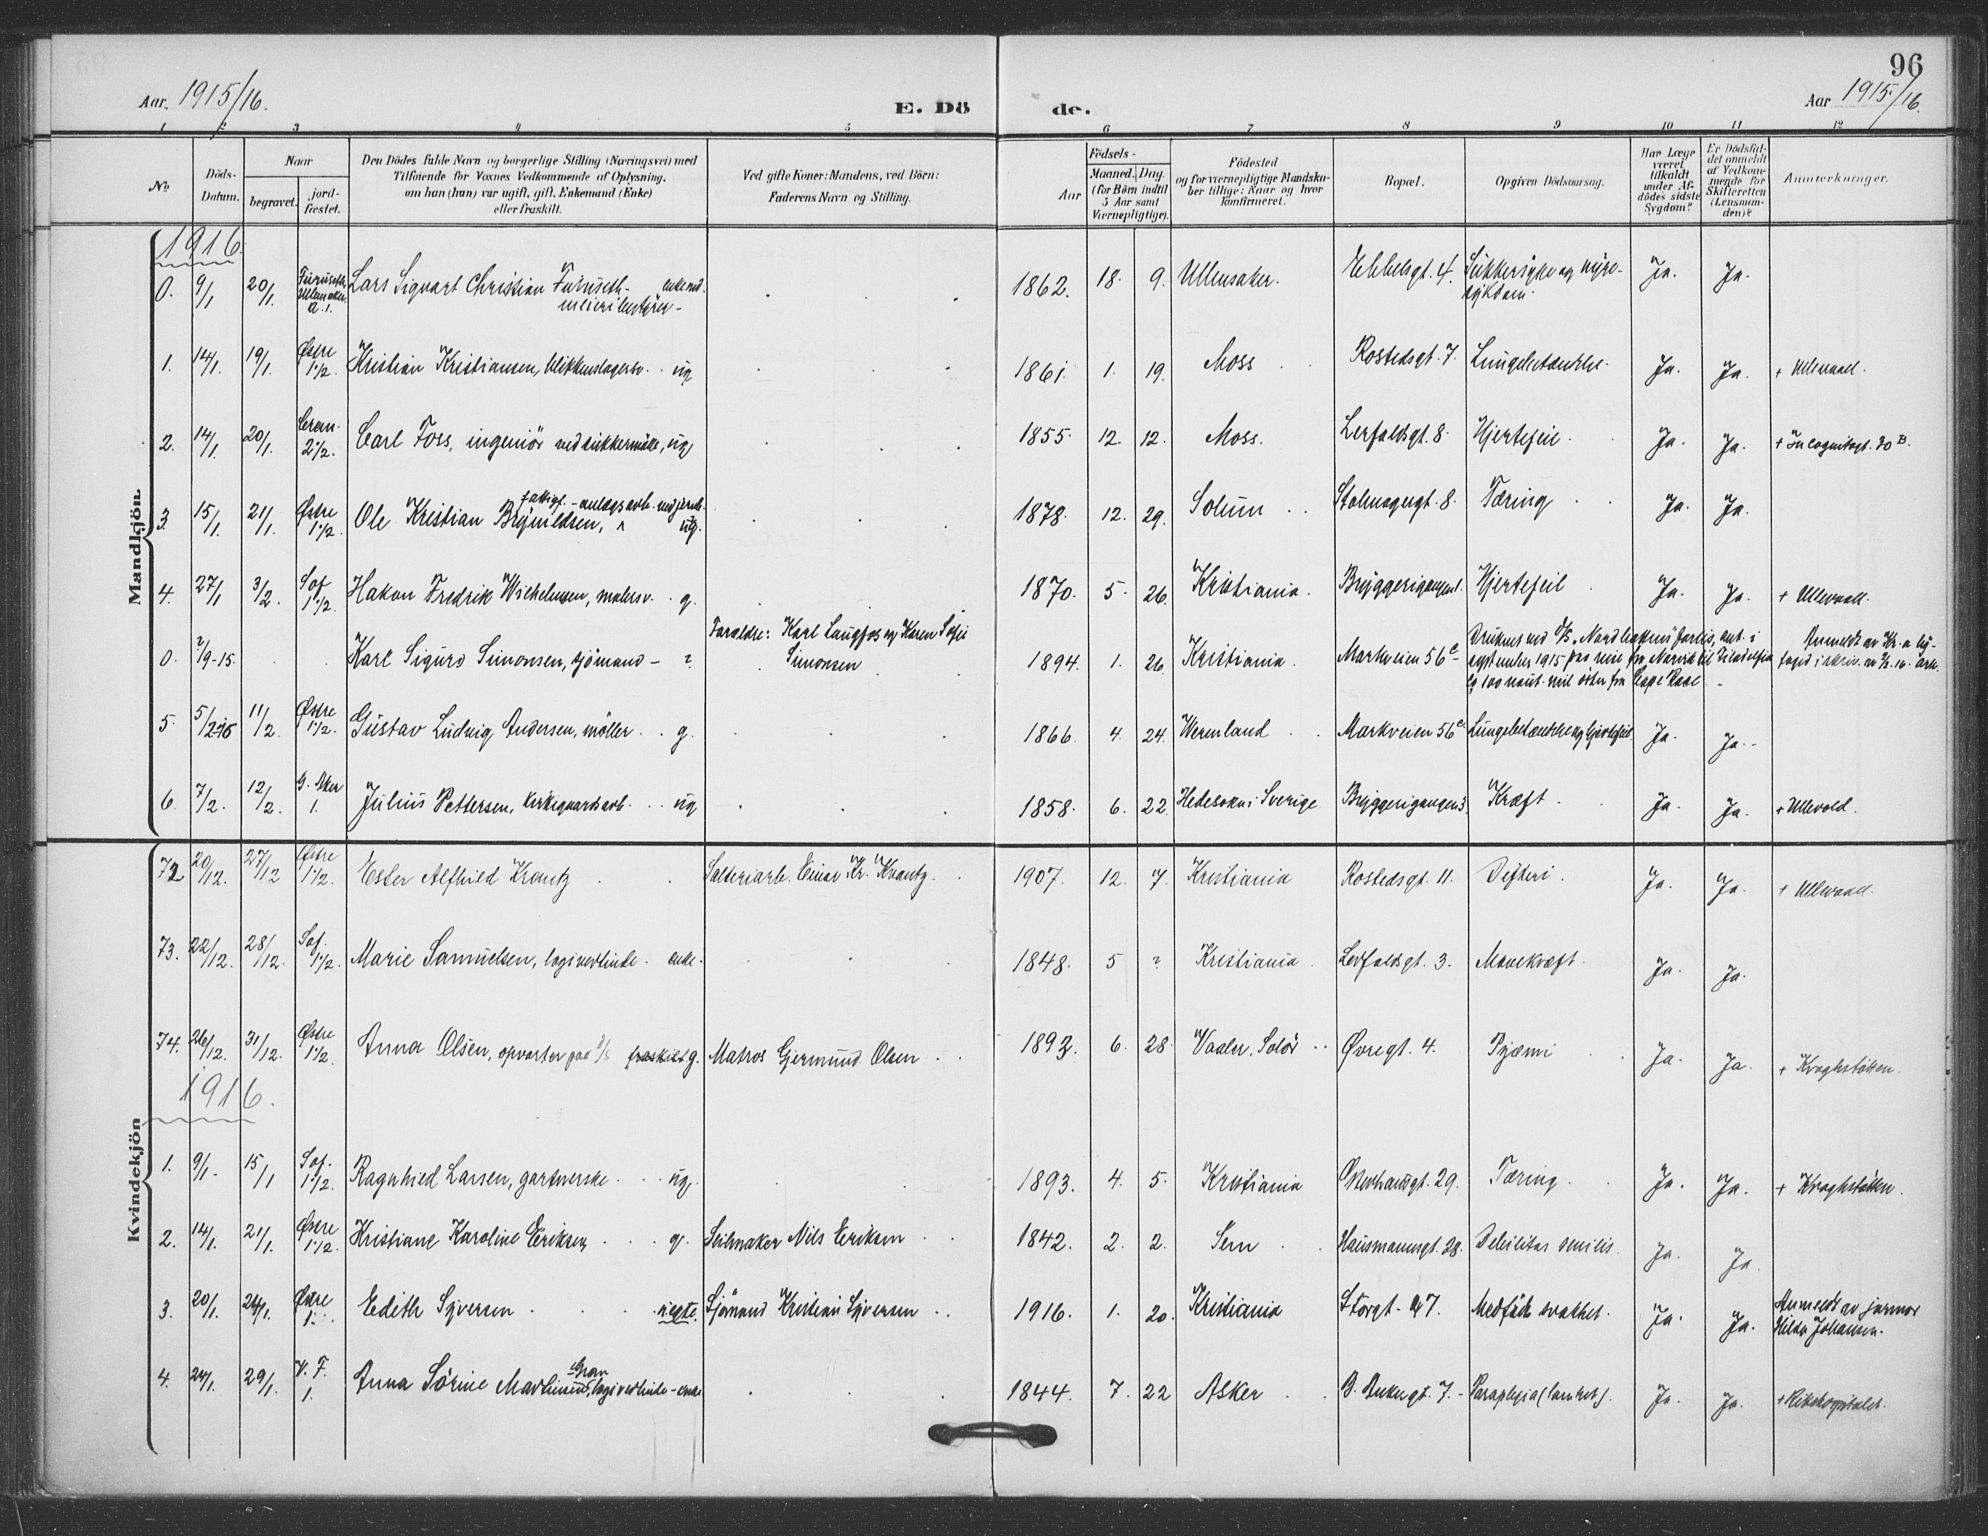 96
Aar 1915/16.
E. Dö
de.
Aar 1915/16.
1 2 3 4 5 6 7 8 9 10 11 12
No
Döds-Datum.
Naar
begravet.
jord-fæstet.
Den Dödes fulde Navn og borgerlige Stilling (Næringsvei) med
Tilföiende for Voxnes Vedkommende af Oplysning,
om han (hun) var ugift, gift, Enkemand (Enke)
eller fraskilt.
Ved gifte Koner: Mandens, ved Börn:
Faderens Navn og Stilling.
Födsels-
Aar
Maaned. Dag.
(for Börn indtil
5 Aar samt
Værnepligtige).
Födested
og for værnepligtige Mandska-
ber tillige: Naar og hvor
konfirmeret.
Bopæl.
Opgiven Dödsaarsag.
Har Læge
været
tilkaldt
under Af-
dödes sidste
Sygdom?
Er Dödsfal-
det anmeldt
af Vedkom-
mende for
Skifteretten
(Lensman-
den)?
Anmærkninger.
Mandkjön.
1916.
0. 9/1 20/1 Furuseth Ullensaker 2.1. Lars Sigvart Christian Furuseth - enkemd. meieribestyrer - 1862. 18. 9. Ullensaker. Ebbelsgt. 4. Sukkersyke og nyre-
sykdom. Ja. Ja.
1. 14/1. 19/1. Østre 1 1/2. Kristian Kristiansen, blikkenslagersv. ug 1861. 1. 19. Moss Rostedsgt. 7. Lungebetændelse. Ja. Ja. + Ullevaal.
2. 14/1. 20/1. Crem. 2 1/2. Carl Foss, ingeniør ved sukkermølle, ug 1855. 12. 12. Moss. Lerfaldsgt. 8. Hjertefeil. Ja. Ja. + Incognitogt. 30 B.
3. 15/1. 21/1. Østre 1 1/2. Ole Kristian Brynildsen, fattigf. - anlægsarb. ved jernb. ug. 1878. 12. 29. Solum Stolmagergt. 8. Tæring Ja. Ja.
4. 27/1 3/2. Sof. 1 1/2. Hakon Fredrik Wilhelmsen, malersv. g. 1870. 5. 26. Kristiania. Bryggerigangen 1. Hjertefeil Ja. Ja. + Ullevaal.
0. ?/9-15. Karl Sigurd Simonsen, sjømand - ? Forældre: Karl Langfos og Karen Sofie
Simonsen 1894. 1. 26. Kristiania. Markveien 56 c - Druknet ved D/S "Nordhakens" forlis, ant. i
september 1915 paa reise fra Narvik til Filadelfia
100 naut. mil öster fra Cape Race. Anmeldt av Kr.a by-
foged i skriv. av
5. 5/2-16 11/2. Østre 1 1/2. Gustav Ludvig Andersen, møller. g. 1866. 4. 24. Wermland Markveien 56 c. Lungebetændelse og hjertefeil Ja. Ja.
6. 7/2. 12/2. G. Aker 1. Julius Pettersen, kirkegaardsarb. ug 1858. 6. 22. Hedesokn i Sverige Bryggerigangen 3. Kræft. Ja. Ja. + Ullevold.
Kvindekjön
72 20/12. 27/12 Østre 1 1/2. Ester Alfhild Krantz Salteriarb. Einar Kr. Krantz. 1907. 12. 7. Kristiania Rostedsgt. 11. Difteri. Ja. Ja. + Ullevaal.
73. 22/12. 28/12. Sof. 1 1/2. Marie Samuelsen, logivertinde. enke. 1848. 5 ? Kristiania Lerfaldsgt. 3. Mavekræft. Ja. Ja.
74. 26/12. 31/12. Østre 1 1/2. Anna Olsen, opvarter paa D/S fraskilt g. Matros Gjermund Olsen 1893. 6. 28. Vaaler, Solør Øvregt. 4. Pyæmi Ja. Ja. + Kroghstøtten.
1916.
1. 9/1. 15/1 Sof. 1 1/2. Ragnhild Larsen, gartnerske ug. 1893. 4. 5. Kristiania Osterhausgt. 29. Tæring. Ja. Ja. + Kroghstøtten.
2. 14/1. 21/1. Østre 1 1/2. Kristiane Karoline Eriksen g. Seilmaker Nils Eriksen 1842. 2. 2. Sem Hausmannsgt. 28. Debilitas senilis. Ja. Ja.
3. 20/1. 24/1. Østre 1. Edith Syversen ægte. Sjömand Kristian Syversen 1916. 1. 20. Kristiania Storgt. 47. Medfödt svakhet. Ja. Ja. Anmeldt av jormor
Hilda Johansen.
4. 24/1. 29/1. V. F. 1. Anna Sörine Mathinsen, Gran logivertinde - enke 1844. 7. 22 Asker B. Ankersgt. 7. - Paraplegia (lamhet). Ja. Ja. + Rikshospitalet.